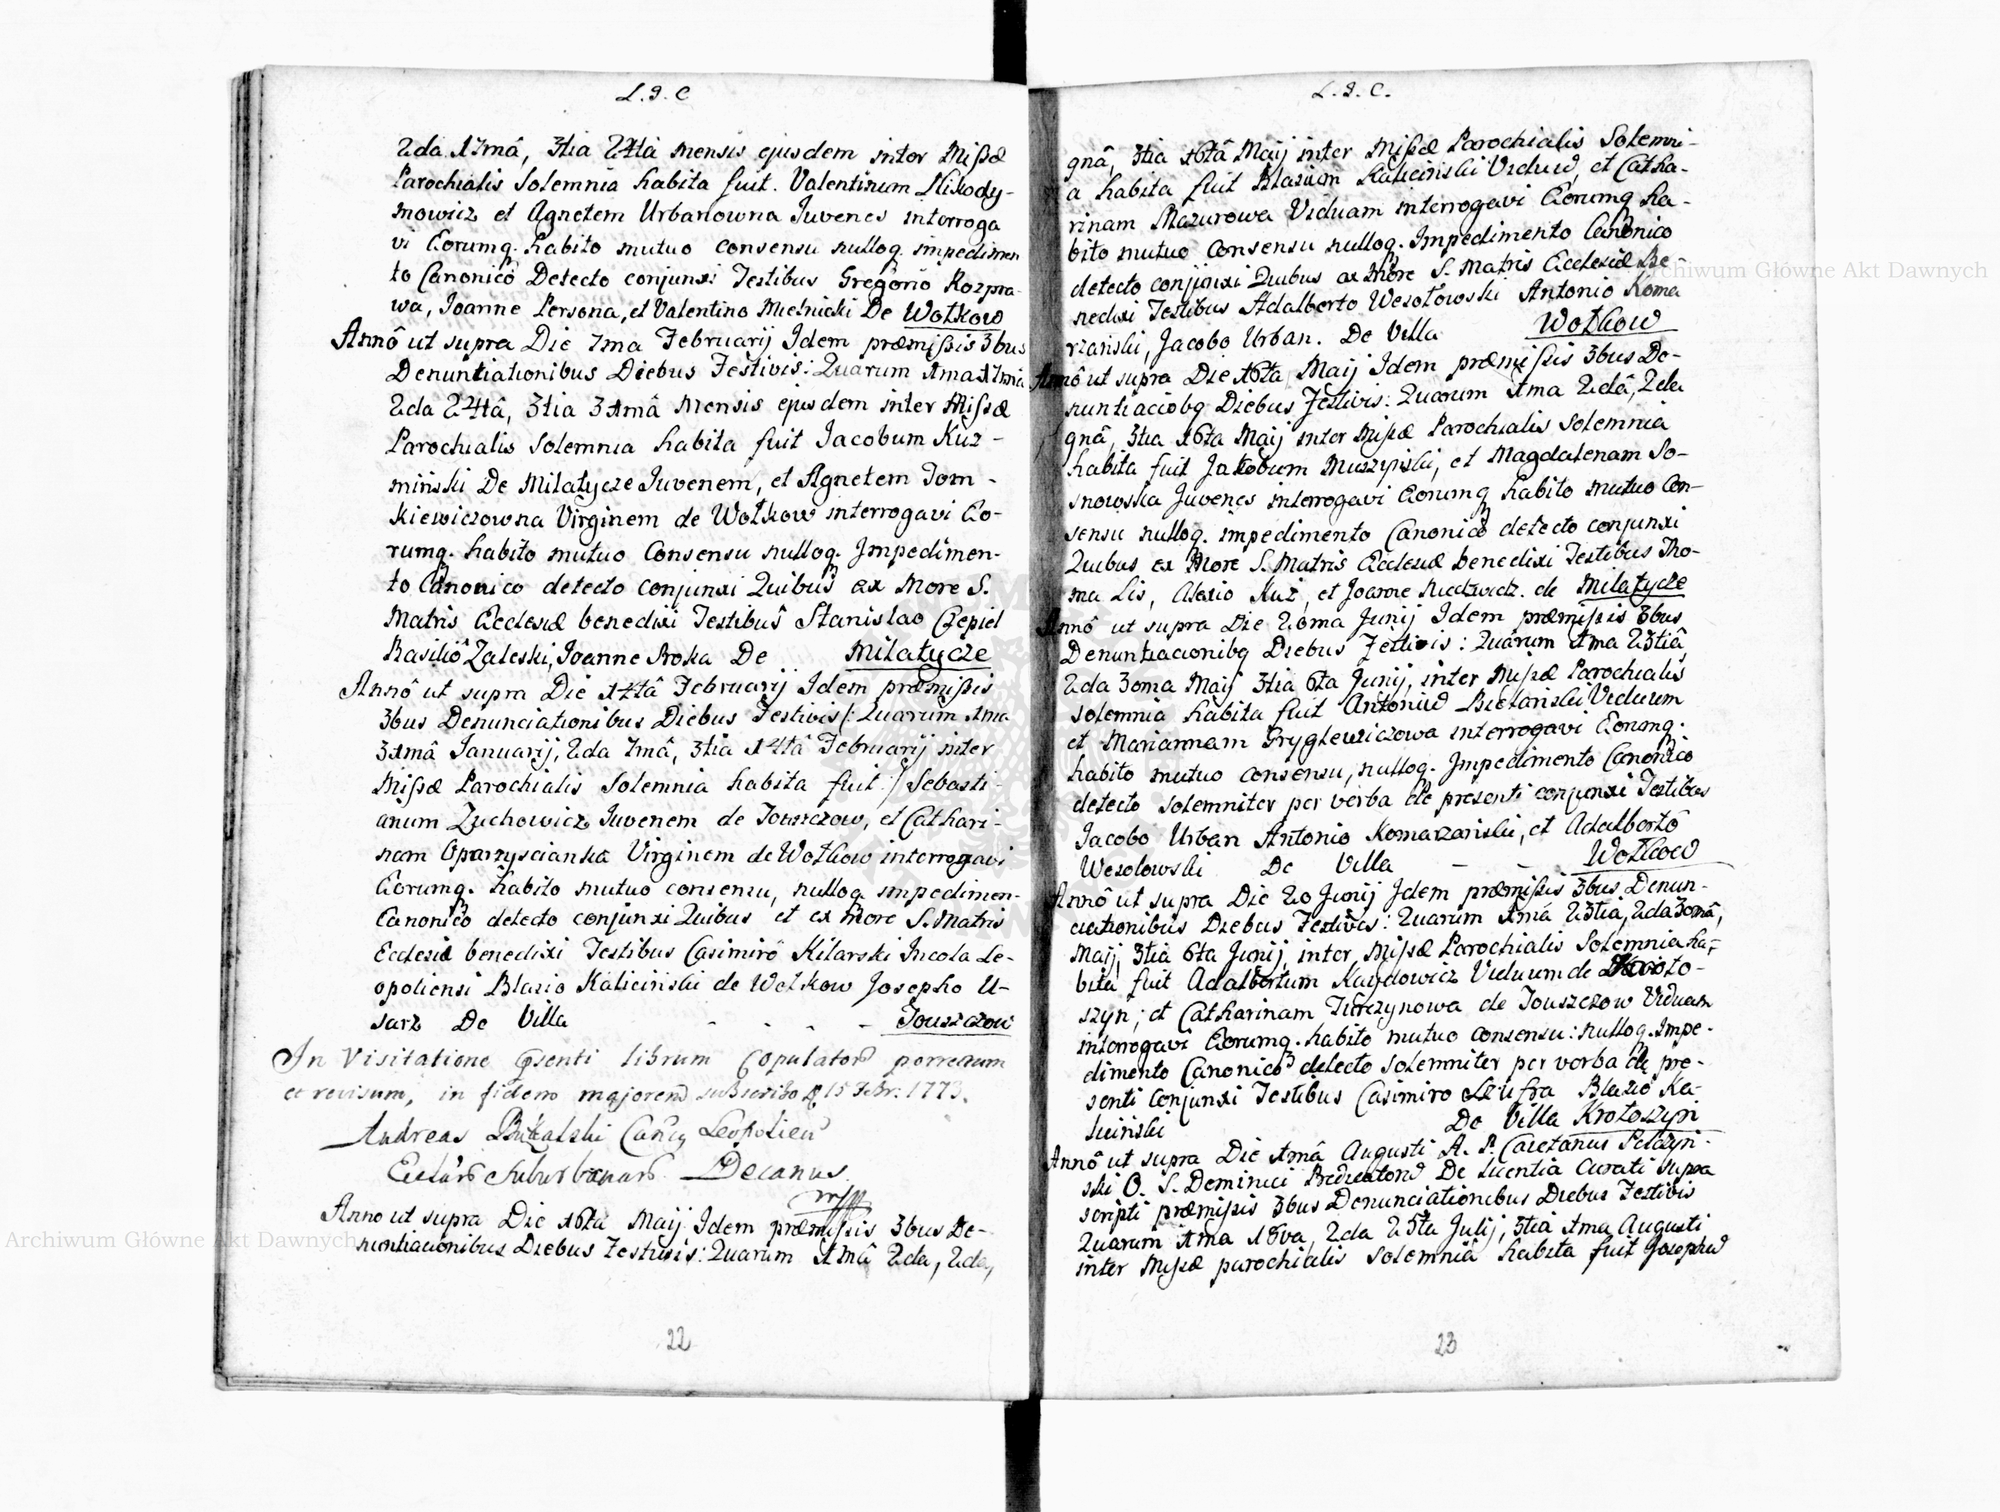 L. J. C
2da 17mâ, 3tia 24ta mensis ejusdem inter Missæ
Parochialis Solemnia habita fuit. Valentinum Nikody-
mowicz et Agnetem Urbanowna Juvenes interroga
vi Eorumq. habito mutuo consensu nulloq. impedimen
to Canonicô Detecto conjunxi Testibus Gregorio Rozpra-
wa, Joanne Persona, et Valentino Mielnicki De Wołkow
Annô ut supra Die 7ma Februarij Idem præmissis 3bus
Denuntiationibus Diebus Festivis: Quarum 1ma 17ma
2da 24tâ, 3tia 31mâ Mensis ejusdem inter Missæ
Parochialis Solemnia habita fuit Jacobum Kuz-
minski De Milatycze Juvenem, et Agnetem Tom-
kiewiczowna Virginem de Wołkow interrogavi Eo-
rumq. habito mutuo Consensu nulloq. Impedimen-
to Canonico detecto conjunxi Quibus ex More S.
Matris Ecclesiæ benedixi Testibus Stanislao Czepiel
Basiliô Zaleski, Joanne Proka De Milatycze
Annô ut supra Die 14tâ Februarij Idem præmissis
3bus Denunciationibus Diebus Festivis/: Quarum 1ma
31mâ Januarij, 2da 7mâ, 3tia 14tâ Februarij inter
Missæ Parochialis Solemnia habita fuit:/ Sebasti-
anum Zuchowicz Juvenem de Touszczow, et Cathari-
nam Oparzyscianka Virginem de Wołkow interrogavi
Eorumq. habito mutuo consensu, nulloq impedimen-
Canonico detecto conjunxi Quibus et ex More S. Matris
Ecclesiæ benedixi Testibus Casimirô Kilarski Incola Le-
opoliensi Blasio Kaliciński de Wołkow Josepho U-
sarz De Villa - - - - Touszczow
In Visitatione pśenti librum Copulatorũ porrectum
et revisum, in fidem majorem subscribo D. 15 Febr. 1773.
Andreas Leopolien
Decanus
mpp
Anno ut supra Die 16ta Maij Idem præmissis 3bus De-
nuntiacionibus Diebus Festivis: Quarum 1mâ 2da, 2da,
22
L. J. C.
gnâ, 3tia 16tâ Maij inter Missæ Parochialis Solemni-
a habita fuit Blasium Kaliciński Viduũ, et Catha-
rinam Mazurowa Viduam interrogavi Eorumq ha-
bito mutuo Consensu nulloq. Impedimento Canonico
detecto conjunxi Quibus ex More S. Matris Ecclesiæ Be-
nedixi Testibus Adalberto Wesołowski Antonio Koma
rzański, Jacobo Urban. De Villa Wołkow
Annô ut supra Die 16ta Maij Idem præmissis 3bus De-
nuntiaciobq Diebus Festivis: Quarum 1ma 2dâ, 2da
gnâ, 3tia 16ta Maij inter Missæ Parochialis Solemnia
habita fuit Jakobum Muszyński, et Magdalenam So-
snowska Juvenes interrogavi Eorumq habito mutuo Con-
sensu nulloq. impedimento Canonicô detecto conjunxi
Quibus ex More S. Matris Ecclesiæ benedixi Testibus Tho-
ma Lis, Alexio Kuz, et Joanne Niedzwiedz. de Milatycze
Annô ut supra Die 20ma Junij Idem præmissis 3bus
Denuntiacionibq Diebus Festivis: Quarum 1ma 23tiâ
2da 30ma Maij 3tia 6ta Junij, inter Missæ Parochialis
solemnia habita fuit Antoniũ Bielański Viduum
et Mariannam Gryglewiczowa interrogavi Eorumq:
habito mutuo consensu, nulloq. Impedimento Canonico
detecto solemniter per verba de presenti conjunxi Testibus
Jacobo Urban Antonio Komarzański, et Adalberto
Wesolowski De Villa - - Wołkow
Annô ut supra Die 20 Junij Idem præmissis 3bus Denun-
ciationibus Diebus Festivis: Quarum 1mâ 23tia, 2da 30mâ,
Maij 3tia 6ta Junij, inter Missæ Parochialis Solemnia ha-
bita fuit Adalbertum Kaydowicz Viduum de Kroto-
szyn; et Catharinam Turczynowa de Touszczow Viduam
interrogavi Eorumq. habito mutuo consensu: nulloq. Impe-
dimento Canonico detecto solemniter per verba de pre-
senti Conjunxi Testibus Casimiro Blasio Ka-
liciński De Villa Krotoszyn
Annô ut supra Die 1mâ Augusti A. P. Caietanus Pełczyń-
ski O. S. Dominici Predicatorũ De licentia Curati supra
scripti præmissis 3bus Denunciationibus Diebus Festivis
Quarum 1ma 18va, 2da 25ta Julij, 3tia 1ma Augusti
inter Missæ parochialis solemniâ habita fuit Josephũ
23
Archiwum Główne Akt Dawnych
Archiwum Główne Akt Dawnych